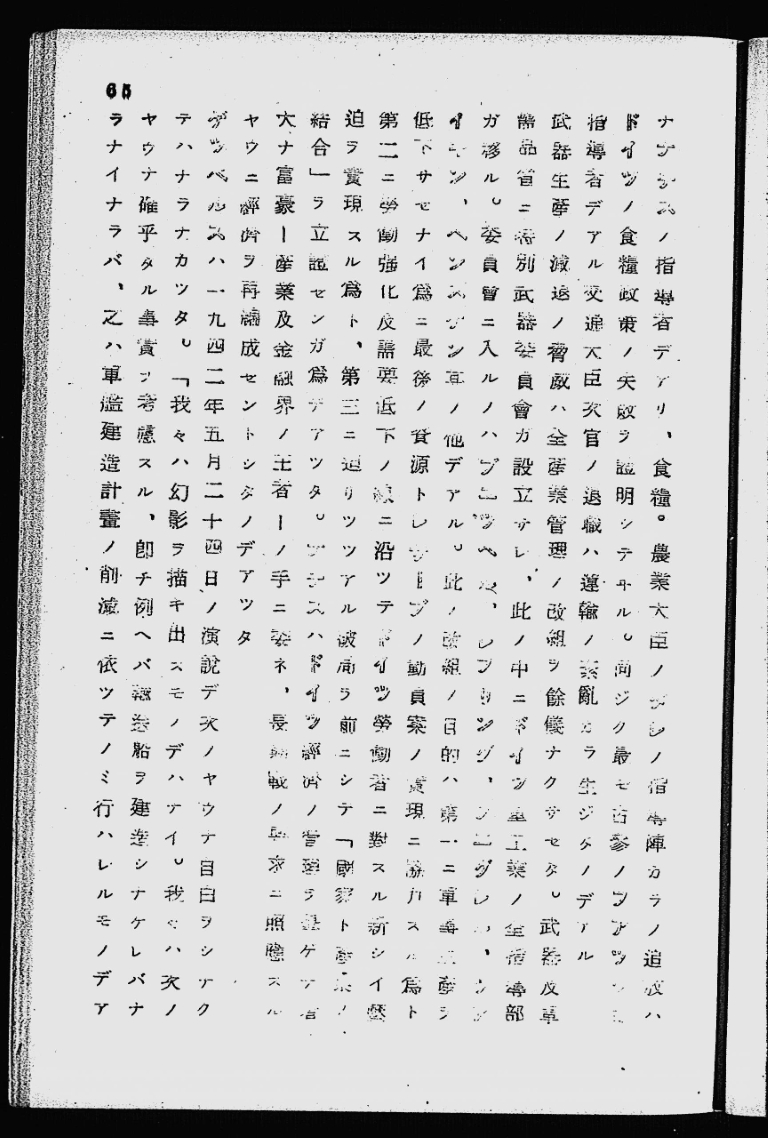 65
ナチスノ指導者デアリ、食糧。農業大臣ノダレノ指導陣カラノ追放ハ
ドイツノ食糧政策ノ失敗ヲ證明シテヰル。同ジク最モ古參ノファッショ
指導者デアル交通大臣次官ノ退職ハ運輸ノ紊亂カラ生ジタノデアル
武器生産ノ減退ノ脅威ハ全産業管理ノ改組ヲ餘儀ナクサセタ。武器及軍
需品省ニ特別武器委員會ガ設立サレ、此ノ中ニドイツ重工業ノ全指導部
ガ移ル。委員會ニ入ルノハブニツヘル、レブリング、フエグレル、
イセン、ヘンスゲン其ノ他デアル。此ノ改組ノ目的ハ第一ニ軍事生産ヲ
低下サセナイ爲ニ最後ノ資源トレザーブノ動員案ノ實現ニ協力スル爲ト
第二ニ勞働強化及需要低下ノ線ニ沿ツテドイツ勞働者ニ對スル新シイ壓
迫ヲ實現スル爲ト、第三ニ迫リツツアル破局ヲ前ニシテ「國家ト産業ノ
結合」ヲ立證センガ爲デアツタ。ナチスハドイツ經濟ノ管理ヲ擧ゲテ
大ナ富豪ー産業及金融界ノ王者ーノ手ニ委ネ、長期戰ノ要求ニ照應スル
ヤウニ經濟ヲ再編成セントシタノデアツタ
ゲツベルスハ一九四二年五月二十四日ノ演説デ次ノヤウナ自白ヲシナク
テハナラナカツタ。「我々ハ幻影ヲ描キ出スモノデハナイ。我々ハ次ノ
ヤウナ確乎タル事實ヲ考慮スル、即チ例ヘバ輸送船ヲ建造シナケレバナ
ラナイナラバ、之ハ軍艦建造計畫ノ削減ニ依ツテノミ行ハレルモノデア